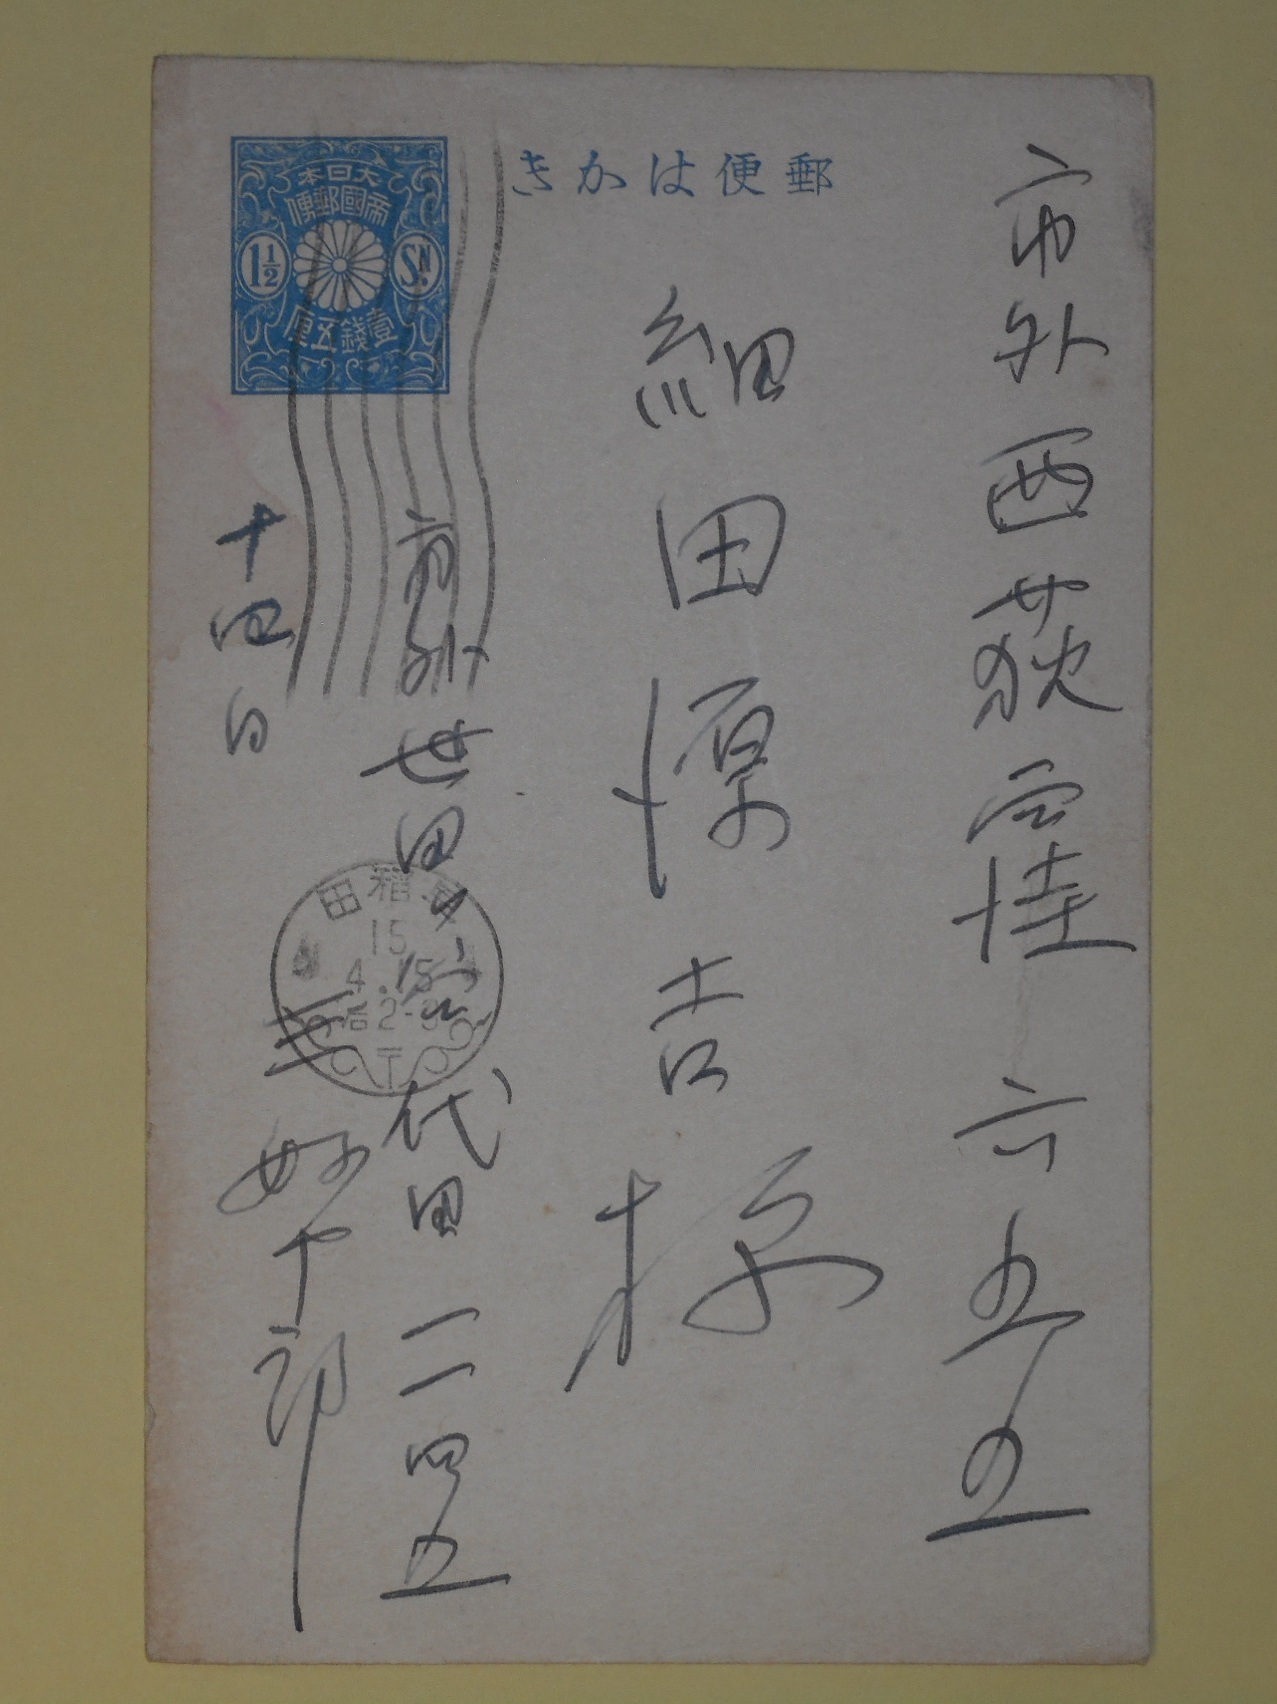 郵便はかき
大日本
帝國郵便
1½ Sn.
壹錢五厘
市外西荻窪六五五
細田源吉様
市外世田ヶ谷代田二四五
十四日
三好十郎
早稲田
15
4.15
后2-3
〒